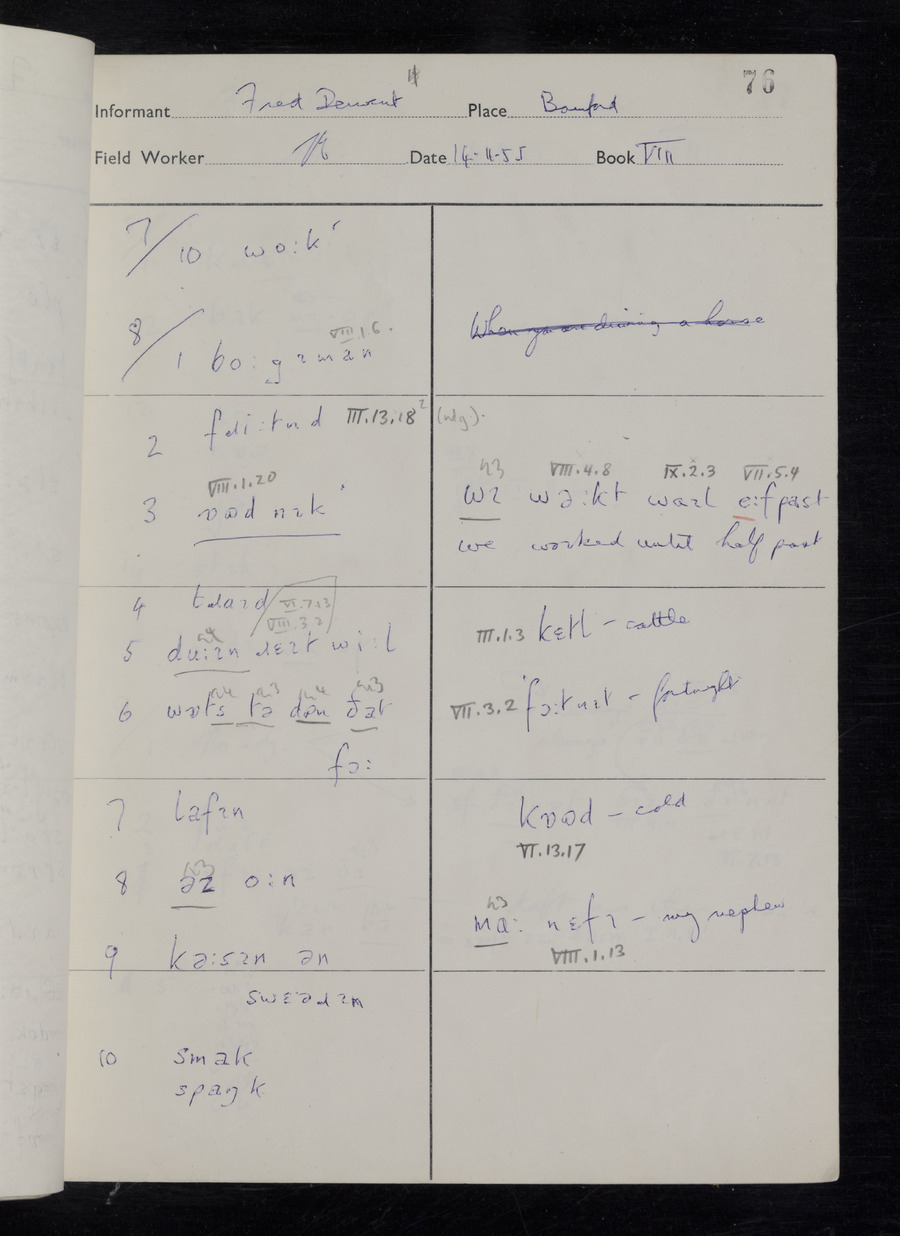 76
Informant Fred Derwent Place Bamford
Field Worker Date 14-11-55 Book VIII
7/10 wo:k
8/1 bo:gəmən VIII.1.6.
When you are driving a horse
2 III.13.18² (wdg).
VIII.1.20
3
n3 VIII.4.8 IX.2.3 VII.5.4
wɪ wə:kt waɪl e:f past
we worked until half past
4 VI.7.13
VIII.3.2
III.1.3 kɛtl – cattle
5 wi:l
VII.3.2 fɔ:tnɪt – fortnight
6 wɒts tə ðat
fɔ:
7 lafɪn
kʊəd – cold
VI.13.17
8 əz o:n
n3
ma: nɛfɪ – my nephew
VIII.1.13
9 kə:sɪn ən
swɛəɹɪn
10 smak
spaŋk